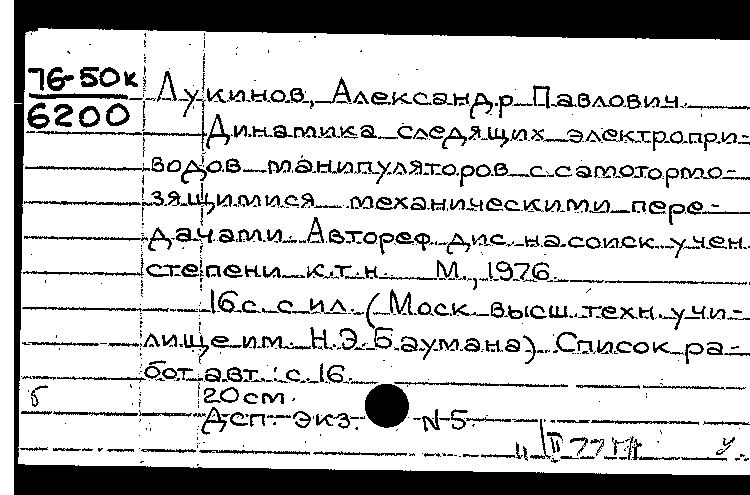 76-50к
6200
Лукинов, Александр Павлович.
Динамика следящих электропри-
водов манипуляторов с самотормо-
зящимися механическими пере-
дачами. Автореф. дис. на соиск. учен.
степени к.т.н. М., 1976.
16 с. с ил. (Моск. высш. техн. учи-
лище им. Н.Э.Баумана). Список ра-
бот авт.: с. 16.
б 20 см.
Дсп. Экз. N 5.